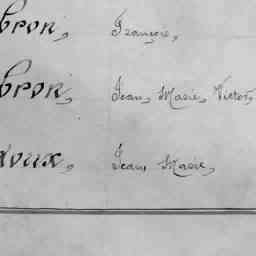 bron, François,
bron, Jean, Marie, Victor,
doux, Jean, Marie,